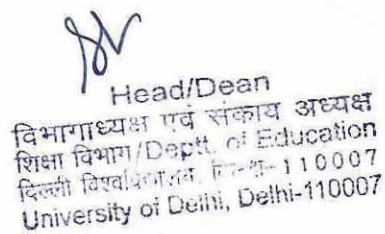 Head/Dean
विभागाध्यक्ष एवं संकाय अध्यक्ष
शिक्षा विभाग/Deptt. of Education
दिल्ली विश्वविद्यालय, 110007
University of Delhi, Delhi-110007